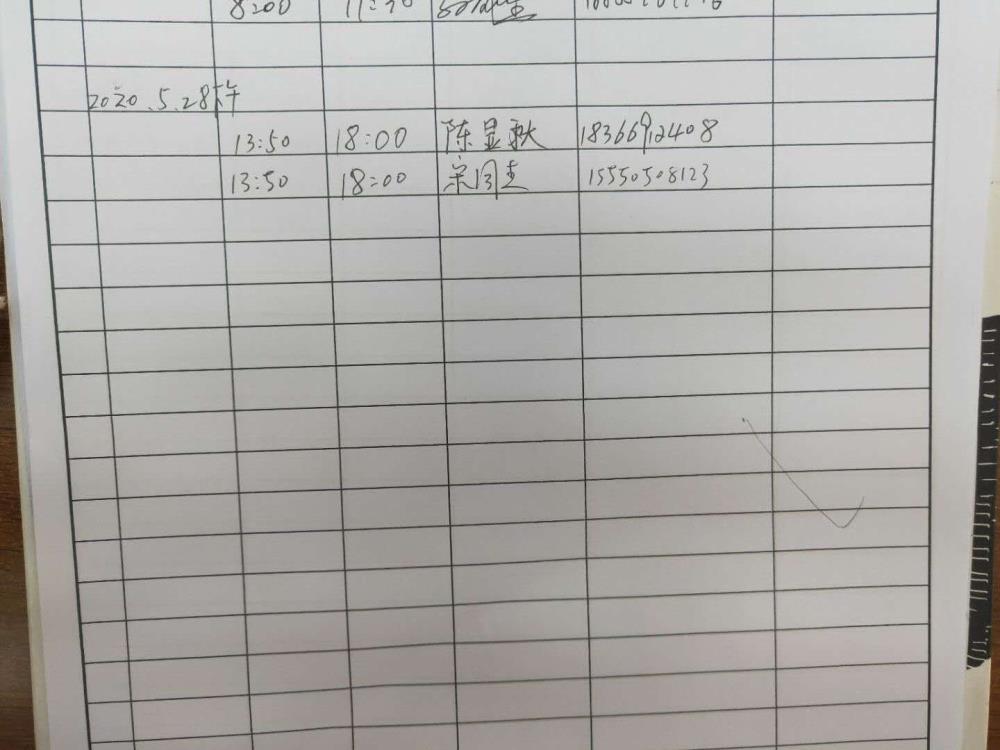 8:00 11:30
2020.5.28下午
13:50 18:00 陈显秋 18366912408
13:50 18:00 宋同圭 15550508123